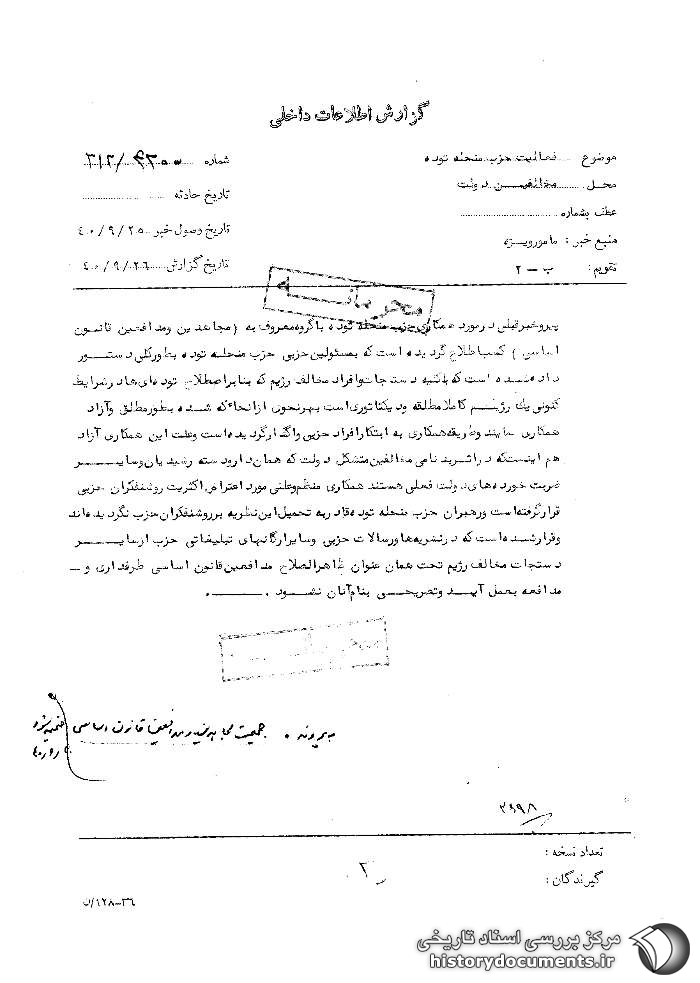 گزارش اطلاعات داخلی
موضوع فعالیت حزب منحله توده
شماره ۳۱۲/
محل مخالفین دولت
تاریخ حادثه
عطف بشماره
تاریخ وصول خبر ۴۰/۹/۲۵
منبع خبر: مامورویژه
تاریخ گزارش ۴۰/۹/۲۶
تقویم: ب-۲
محرمانه
پیروخبرقبلی درمورد همکاری حزب منحله توده باگروه معروف به (مجاهدین ومدافعین قانون
اساسی) کسب اطلاع گردیده است که بمسئولین حزبی حزب منحله توده بطورکلی دستور
داده شده است که باکلیه دستجات وافراد مخالف رژیم که بنابراصطلاح توده ای ها درشرایط
کنونی یک رژیم کاملا مطلقه ودیکتاتوری است بهرنحوی ازانحاء که شده بطورمطلق وآزاد
همکاری نمایند وطریقه همکاری به ابتکارافراد حزبی واگذارگردیده است وعلت این همکاری آزاد
هم اینستکه دراثر بدنامی مخالفین متشکل دولت که همان دارودسته رشیدیان وسایر
ضربت خورده های دولت فعلی هستند همکاری منظم وعلنی مورد اعتراض اکثریت روشنفکران حزبی
قرارگرفته است ورهبران حزب منحله توده قادربه تحمیل این نظریه برروشنفکران حزب نگردیده اند
وقرارشده است که درنشریه ها ورسالات حزبی وسایرارگانهای تبلیغاتی حزب ازسایر
دستجات مخالف رژیم تحت همان عنوان ظاهرالصلاح مدافعین قانون اساسی طرفداری و -
مدافعه بعمل آید وتصریحی بنام آنان نشود .
محرمانه
به پرونده جمعیت مجاهدین و مدافعین قانون اساسی ضمیمه شود
۲۹۹۸
تعداد نسخه :
گیرندگان :
۲
۱۲۸-۳۶/ب
مرکز بررسی اسناد تاریخی
historydocuments.ir